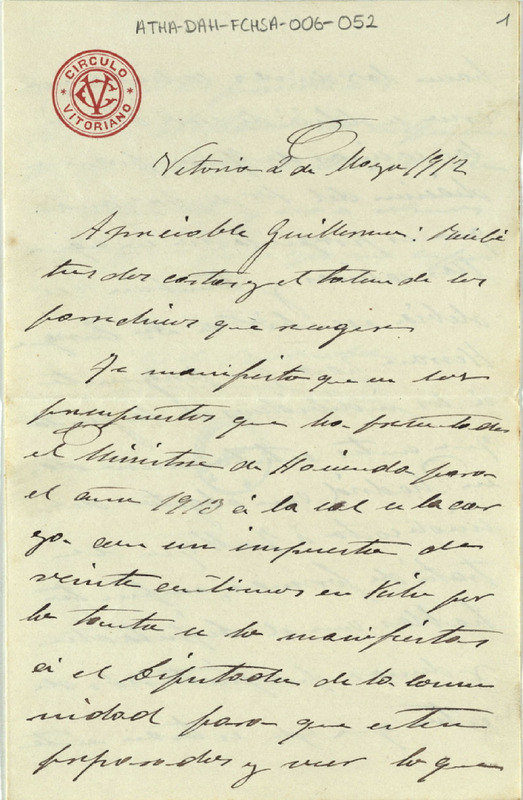 ATHA-DAH-FCHSA-006-052
1
CIRCULO
VITORIANO
CV
Vitoria 2 de Mayo 1912
Apreciable Guillermo: Recibi
tus dos cartas y el talon de los
que recogere
Te manifiesto que en los
presupuestos que ha presentado
el Ministro de Hacienda para
el año 1913 á la sal se la car
ga con un impuesto de
veinte centimos en Kilo por
lo tanto se lo manifiestas
á el Diputado de la comu
nidad para que esten
preparados y ver lo que